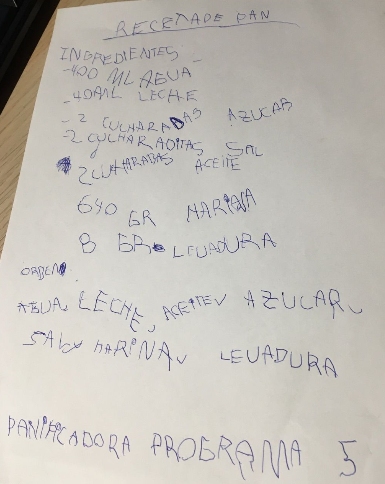 RECETADE PAN
INGREDIENTES
-400 ML AGUA
-40ML LECHE
-2 CUCHARADAS AZUCAR
-2 CUCHARADITAS SAL
2 CUCHARADAS ACEITE
640 GR HARINA
8 GR LEVADURA
ORDEN
AGUA, LECHE, ACEITE, AZUCAR,
SAL, HARINA, LEVADURA
PANIFICADORA PROGRAMA 5